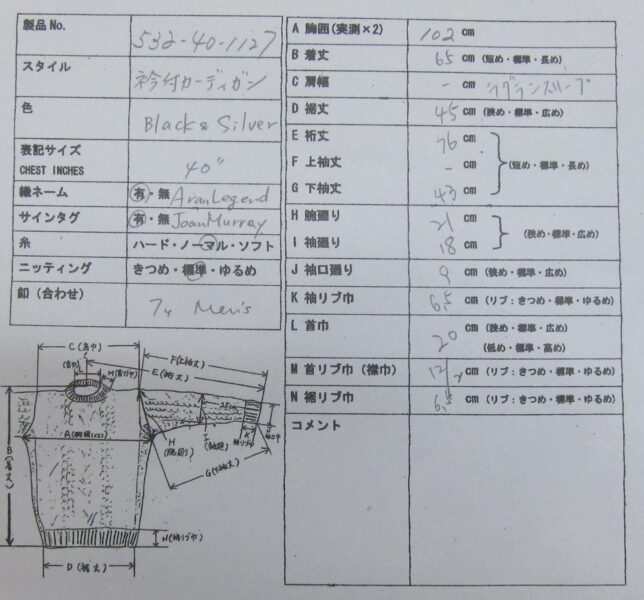 製品No. 532-40-1127
スタイル 衿付カーディガン
色 Black & Silver
表記サイズ
CHEST INCHES 40"
織ネーム 有・無 Aran Legend
サインタグ 有・無 Joan Murray
糸 ハード・ノーマル・ソフト
ニッティング きつめ・標準・ゆるめ
釦（合わせ） 7ヶ Men's
A 胸囲(実測×2) 102 cm
B 着丈 65 cm (短め・標準・長め)
C 肩幅 - cm ラグランスリーブ
D 裾丈 45 cm (狭め・標準・広め)
E 裄丈 76 cm
F 上袖丈 - cm (短め・標準・長め)
G 下袖丈 43 cm
H 腕廻り 21 cm
(狭め・標準・広め)
I 袖廻り 18 cm
J 袖口廻り 9 cm (狭め・標準・広め)
K 袖リブ巾 6.5 cm (リブ：きつめ・標準・ゆるめ)
L 首巾 20 cm (狭め・標準・広め)
(低め・標準・高め)
M 首リブ巾（襟巾） 12 cm (リブ：きつめ・標準・ゆるめ)
N 裾リブ巾 6.5 cm (リブ：きつめ・標準・ゆるめ)
コメント
C(肩巾)
F(上袖丈)
E(裄丈)
B(着丈)
A(胸囲×2)
H
(腕廻り)
I
K
袖リブ巾
G(下袖丈)
N(裾リブ巾)
D(裾丈)